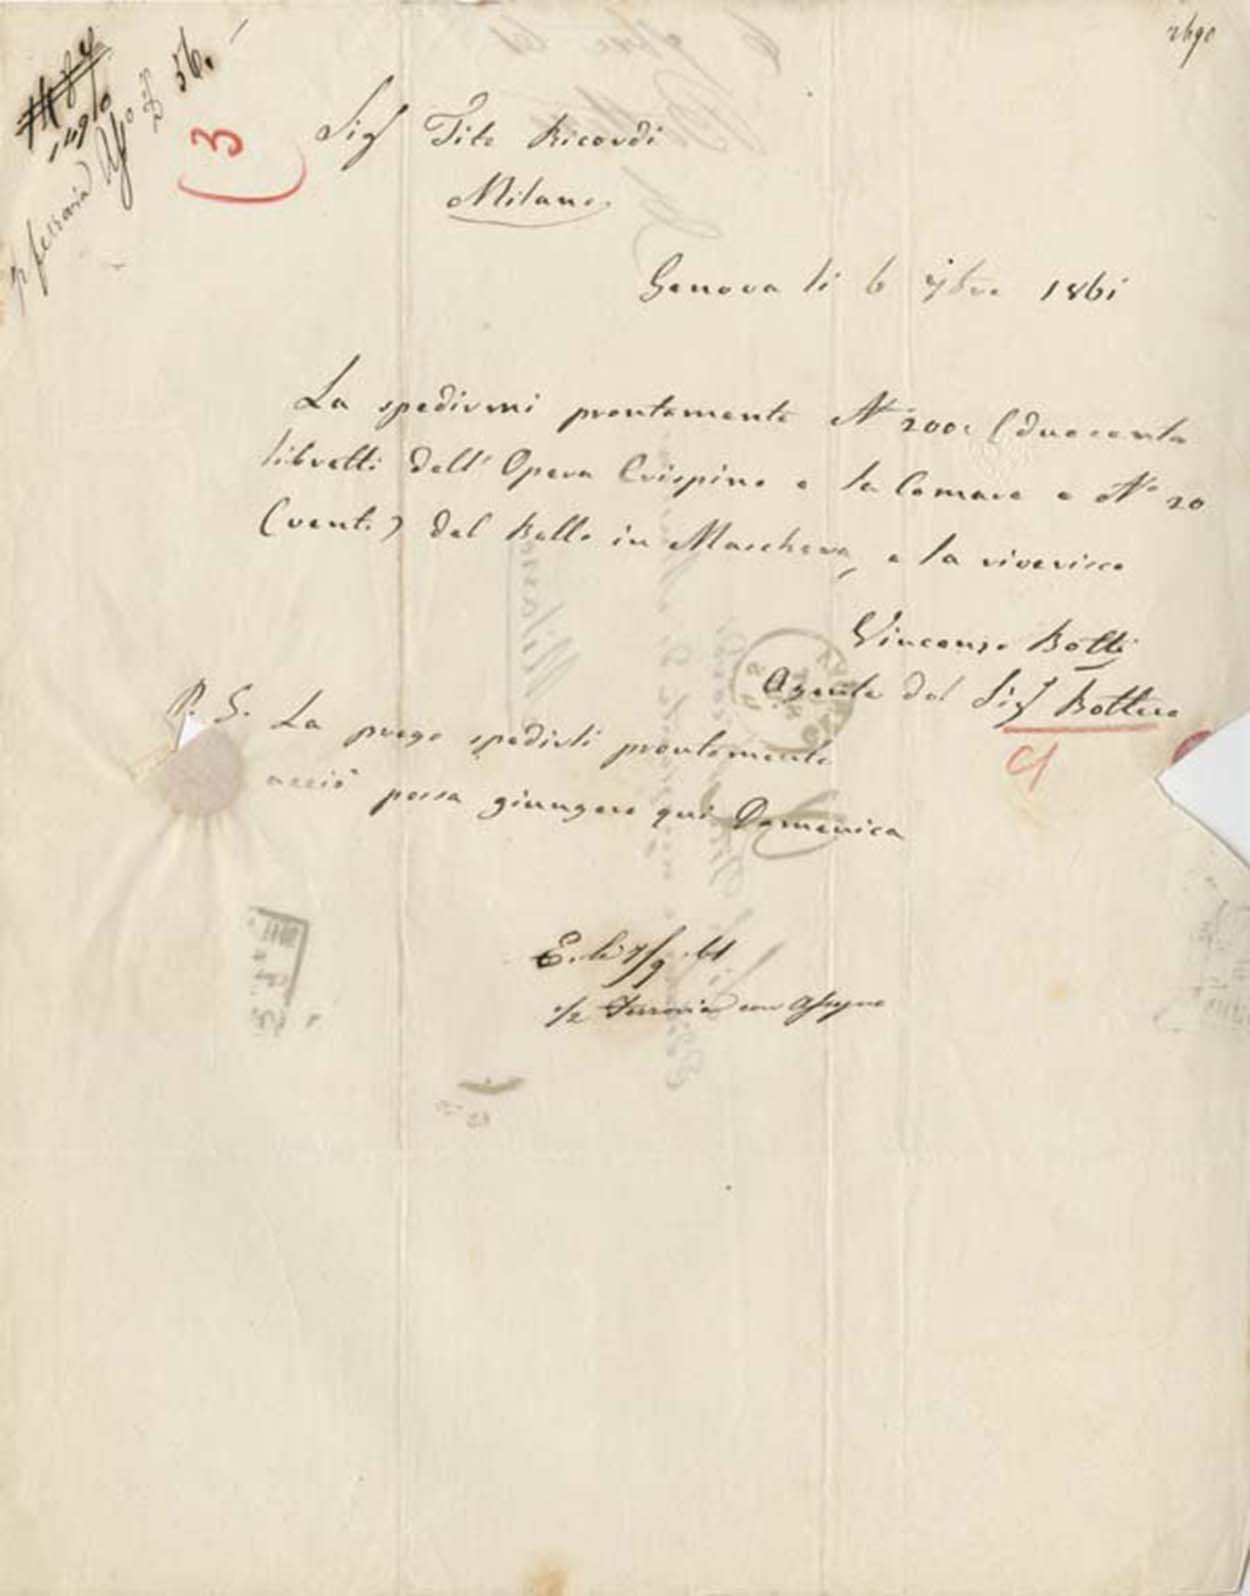 2690
56.
3
Sigr Tito Ricordi
Milano
Genova li 6 7bre 1861
La spedirmi prontamente No 200 (duecento
libretti dell' Opera Crispino e la Comare e No 20
(venti) del Ballo in Maschera, e la riverisco
Vincenzo Botti
Agente del Sigr Bottero
P. S. La prego spedirli prontamente
acciò possa giungere qui Domenica
E. li 7/9 61
Ferrovia con Assegno